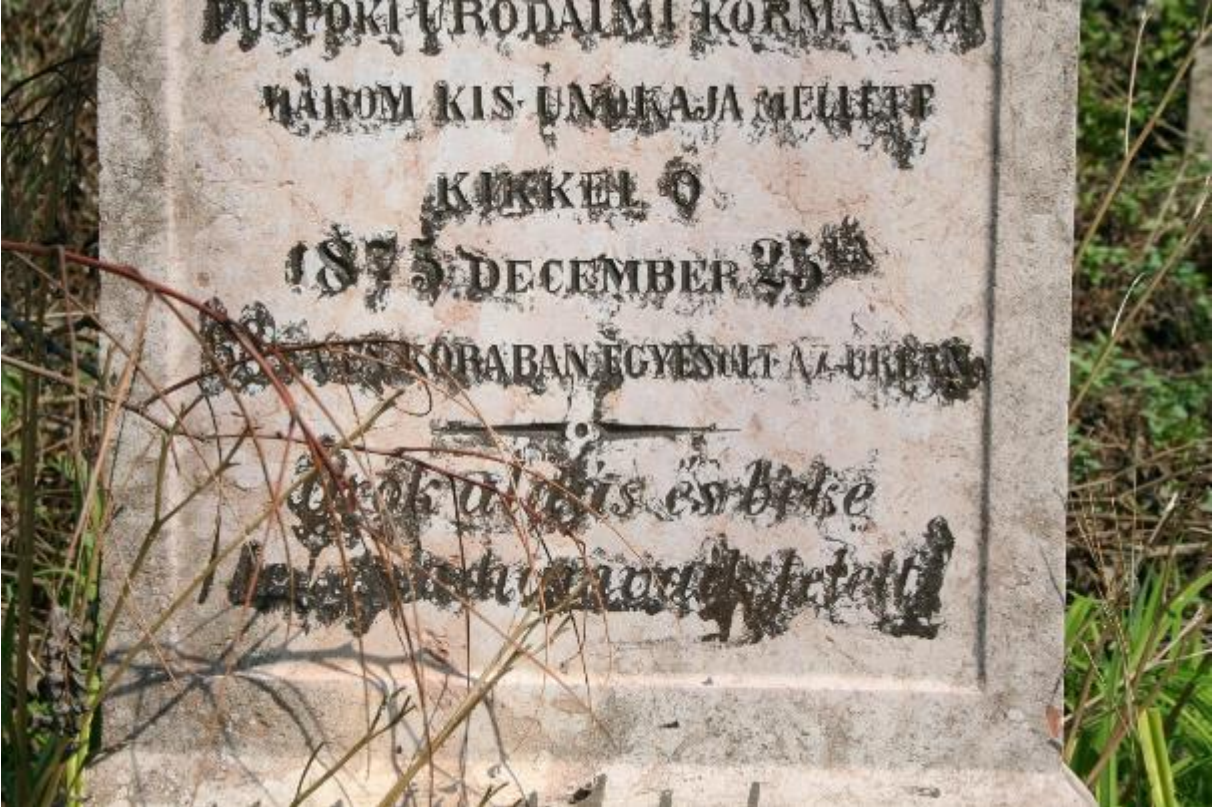 PÜSPÖKI URODALMI KORMÁNYZÓ
HÁROM KIS UNOKÁJA MELLETT
KIKKEL Ő
1875 DECEMBER 25
KORÁBAN EGYESÜLT AZ ÚRBAN
Örök áldás és béke